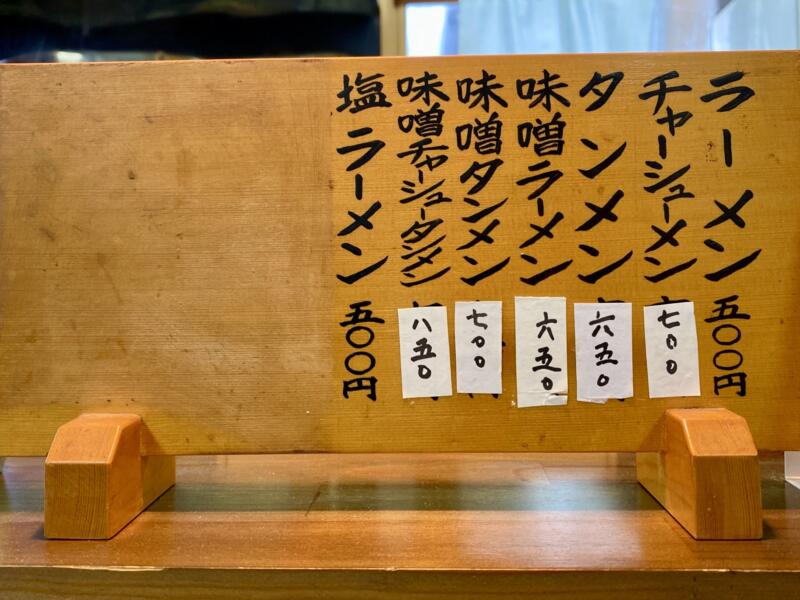 ラーメン 五〇〇円
チャーシューメン 七〇〇
タンメン 六五〇
味噌ラーメン 六五〇
味噌タンメン 七〇〇
味噌チャーシュータンメン 八五〇
塩ラーメン 五〇〇円